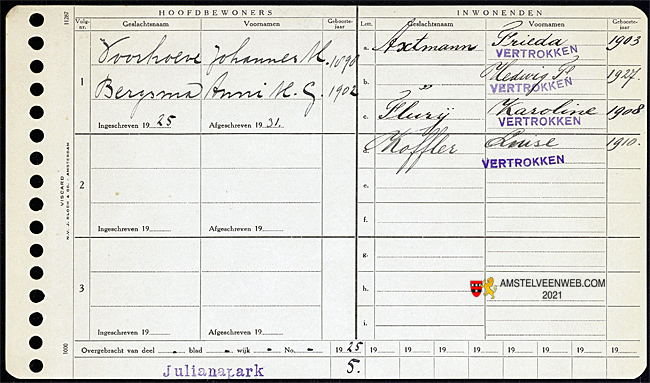 HOOFDBEWONERS
INWONENDEN
Volg-nr. Geslachtsnaam Voornamen Geboorte-jaar Lett. Geslachtsnaam Voornamen Geboorte-jaar
1
Voorhoeve Johannes M. 1898
Bergsma Anni M. G. 1902
Ingeschreven 1925 Afgeschreven 1931.
a. Axtmann Frieda 1903
VERTROKKEN
b. " Hedwig 1927.
VERTROKKEN
c. Flury Karoline 1908
VERTROKKEN
Koffler Louise 1910.
VERTROKKEN
2
Ingeschreven 19 Afgeschreven 19
e.
f.
3
Ingeschreven 19 Afgeschreven 19
g.
h.
i.
AMSTELVEENWEB.COM
2021
Overgebracht van deel - blad - wijk - No. - 1925 19 19 19 19 19 19 19 19
Julianapark 5.
11287
VISCARD
N.V. J. BLOEM & CO. AMSTERDAM
1000